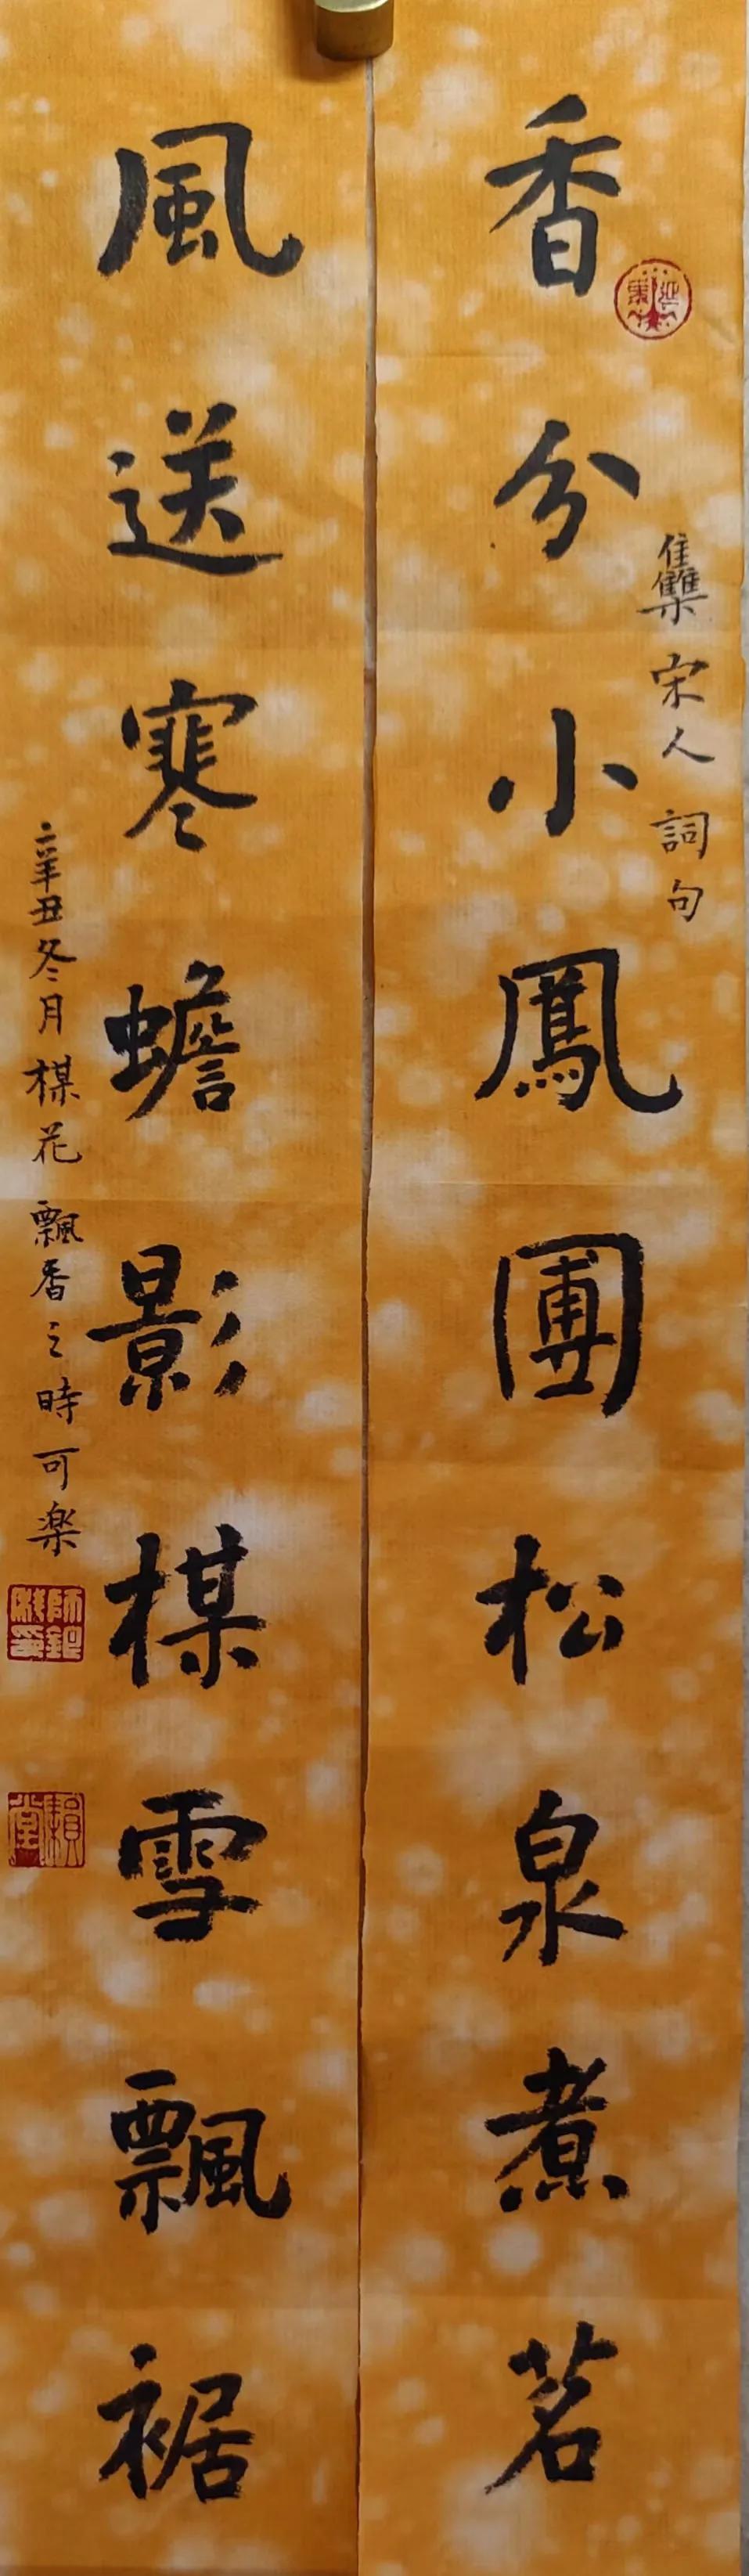 香分小鳳團松泉煮茗
集宋人詞句
風送寒蟾影楳雪飄裾
辛丑冬月楳花飄香之時可樂